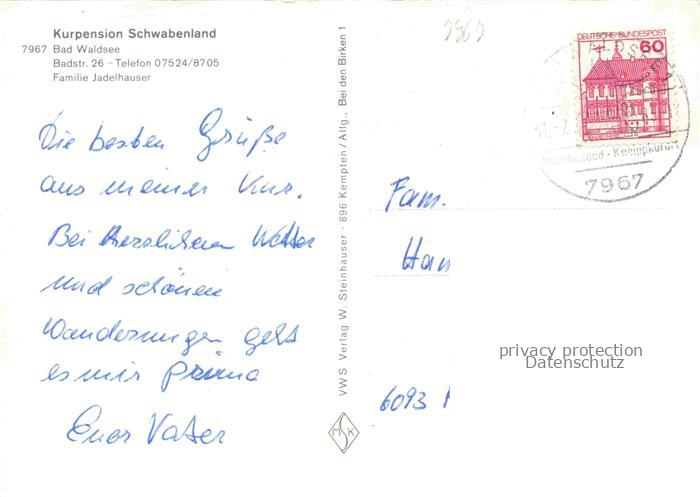 Kurpension Schwabenland
7967 Bad Waldsee
Badstr. 26 - Telefon 07524/8705
Familie Jadelhauser
Die besten Grüße
aus meiner Kur.
Bei herrlichem Wetter
und schönen
Wanderungen geht
es mir prima
Euer Vater
VWS Verlag W. Steinhauser · 896 Kempten / Allg., Bei den Birken 1
MSK
7967
DEUTSCHE BUNDESPOST
60
Kneippkurort
7967
Fam.
Han
6093
privacy protection
Datenschutz